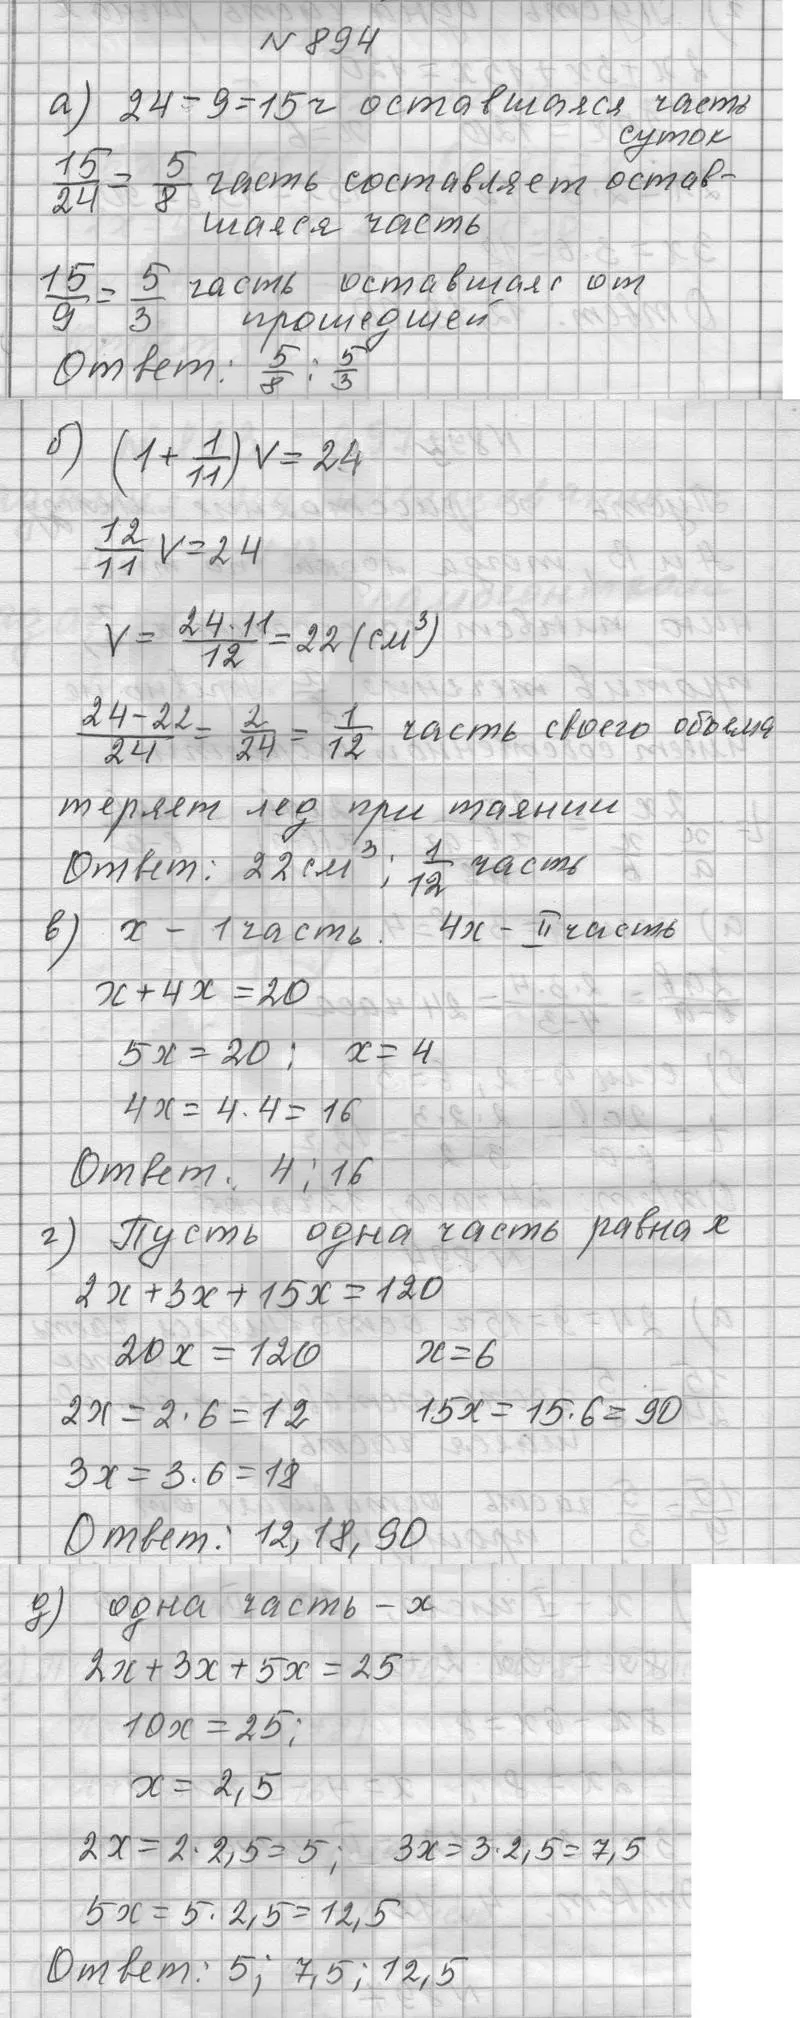 N 894
а) 24-9=15 ч оставшаяся часть
суток
15/24 = 5/8 часть составляет остав-
шаяся часть
15/9 = 5/3 часть оставшаяс от
прошедшей
Ответ: 5/8; 5/3
б) (1+1/11)V=24
12/11 V=24
V= 24·11/12 =22 (см³)
24-22/24 = 2/24 = 1/12 часть своего объема
теряет лед при таянии
Ответ: 22 см³; 1/12 часть
в) x - 1 часть. 4x - II часть
x+4x=20
5x=20; x=4
4x=4·4=16
Ответ: 4; 16
г) Пусть одна часть равна x
2x+3x+15x=120
20x=120 x=6
2x=2·6=12 15x=15·6=90
3x=3·6=18
Ответ: 12, 18, 90
д) одна часть - x
2x+3x+5x=25
10x=25;
x=2,5
2x=2·2,5=5; 3x=3·2,5=7,5
5x=5·2,5=12,5
Ответ: 5; 7,5; 12,5